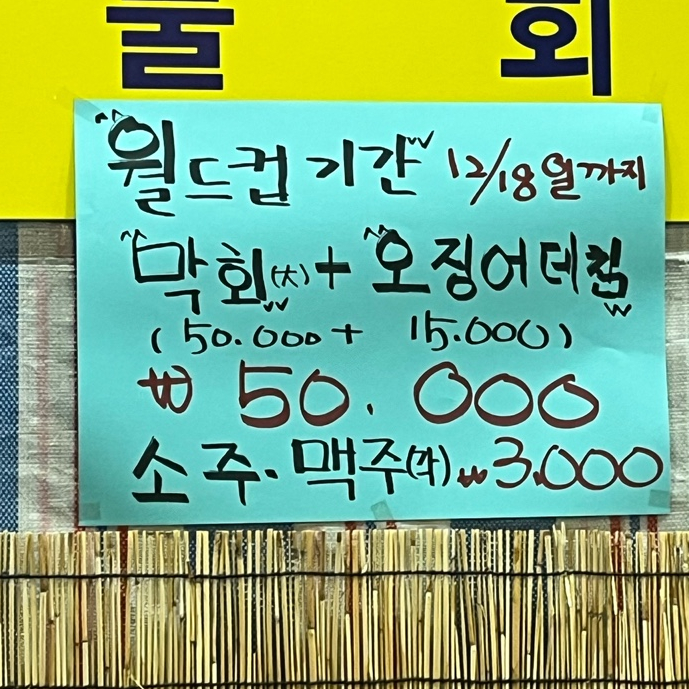 물 회
"월드컵 기간" 12/18일까지
"막회(大)" + "오징어데침"
(50.000 + 15.000)
₩ 50.000
소주·맥주(각) ₩3.000